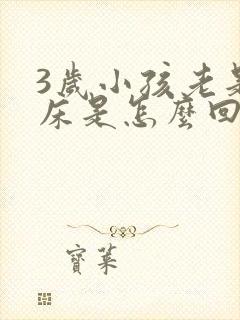 3歲小孩老是
床是怎麼回
寶葉